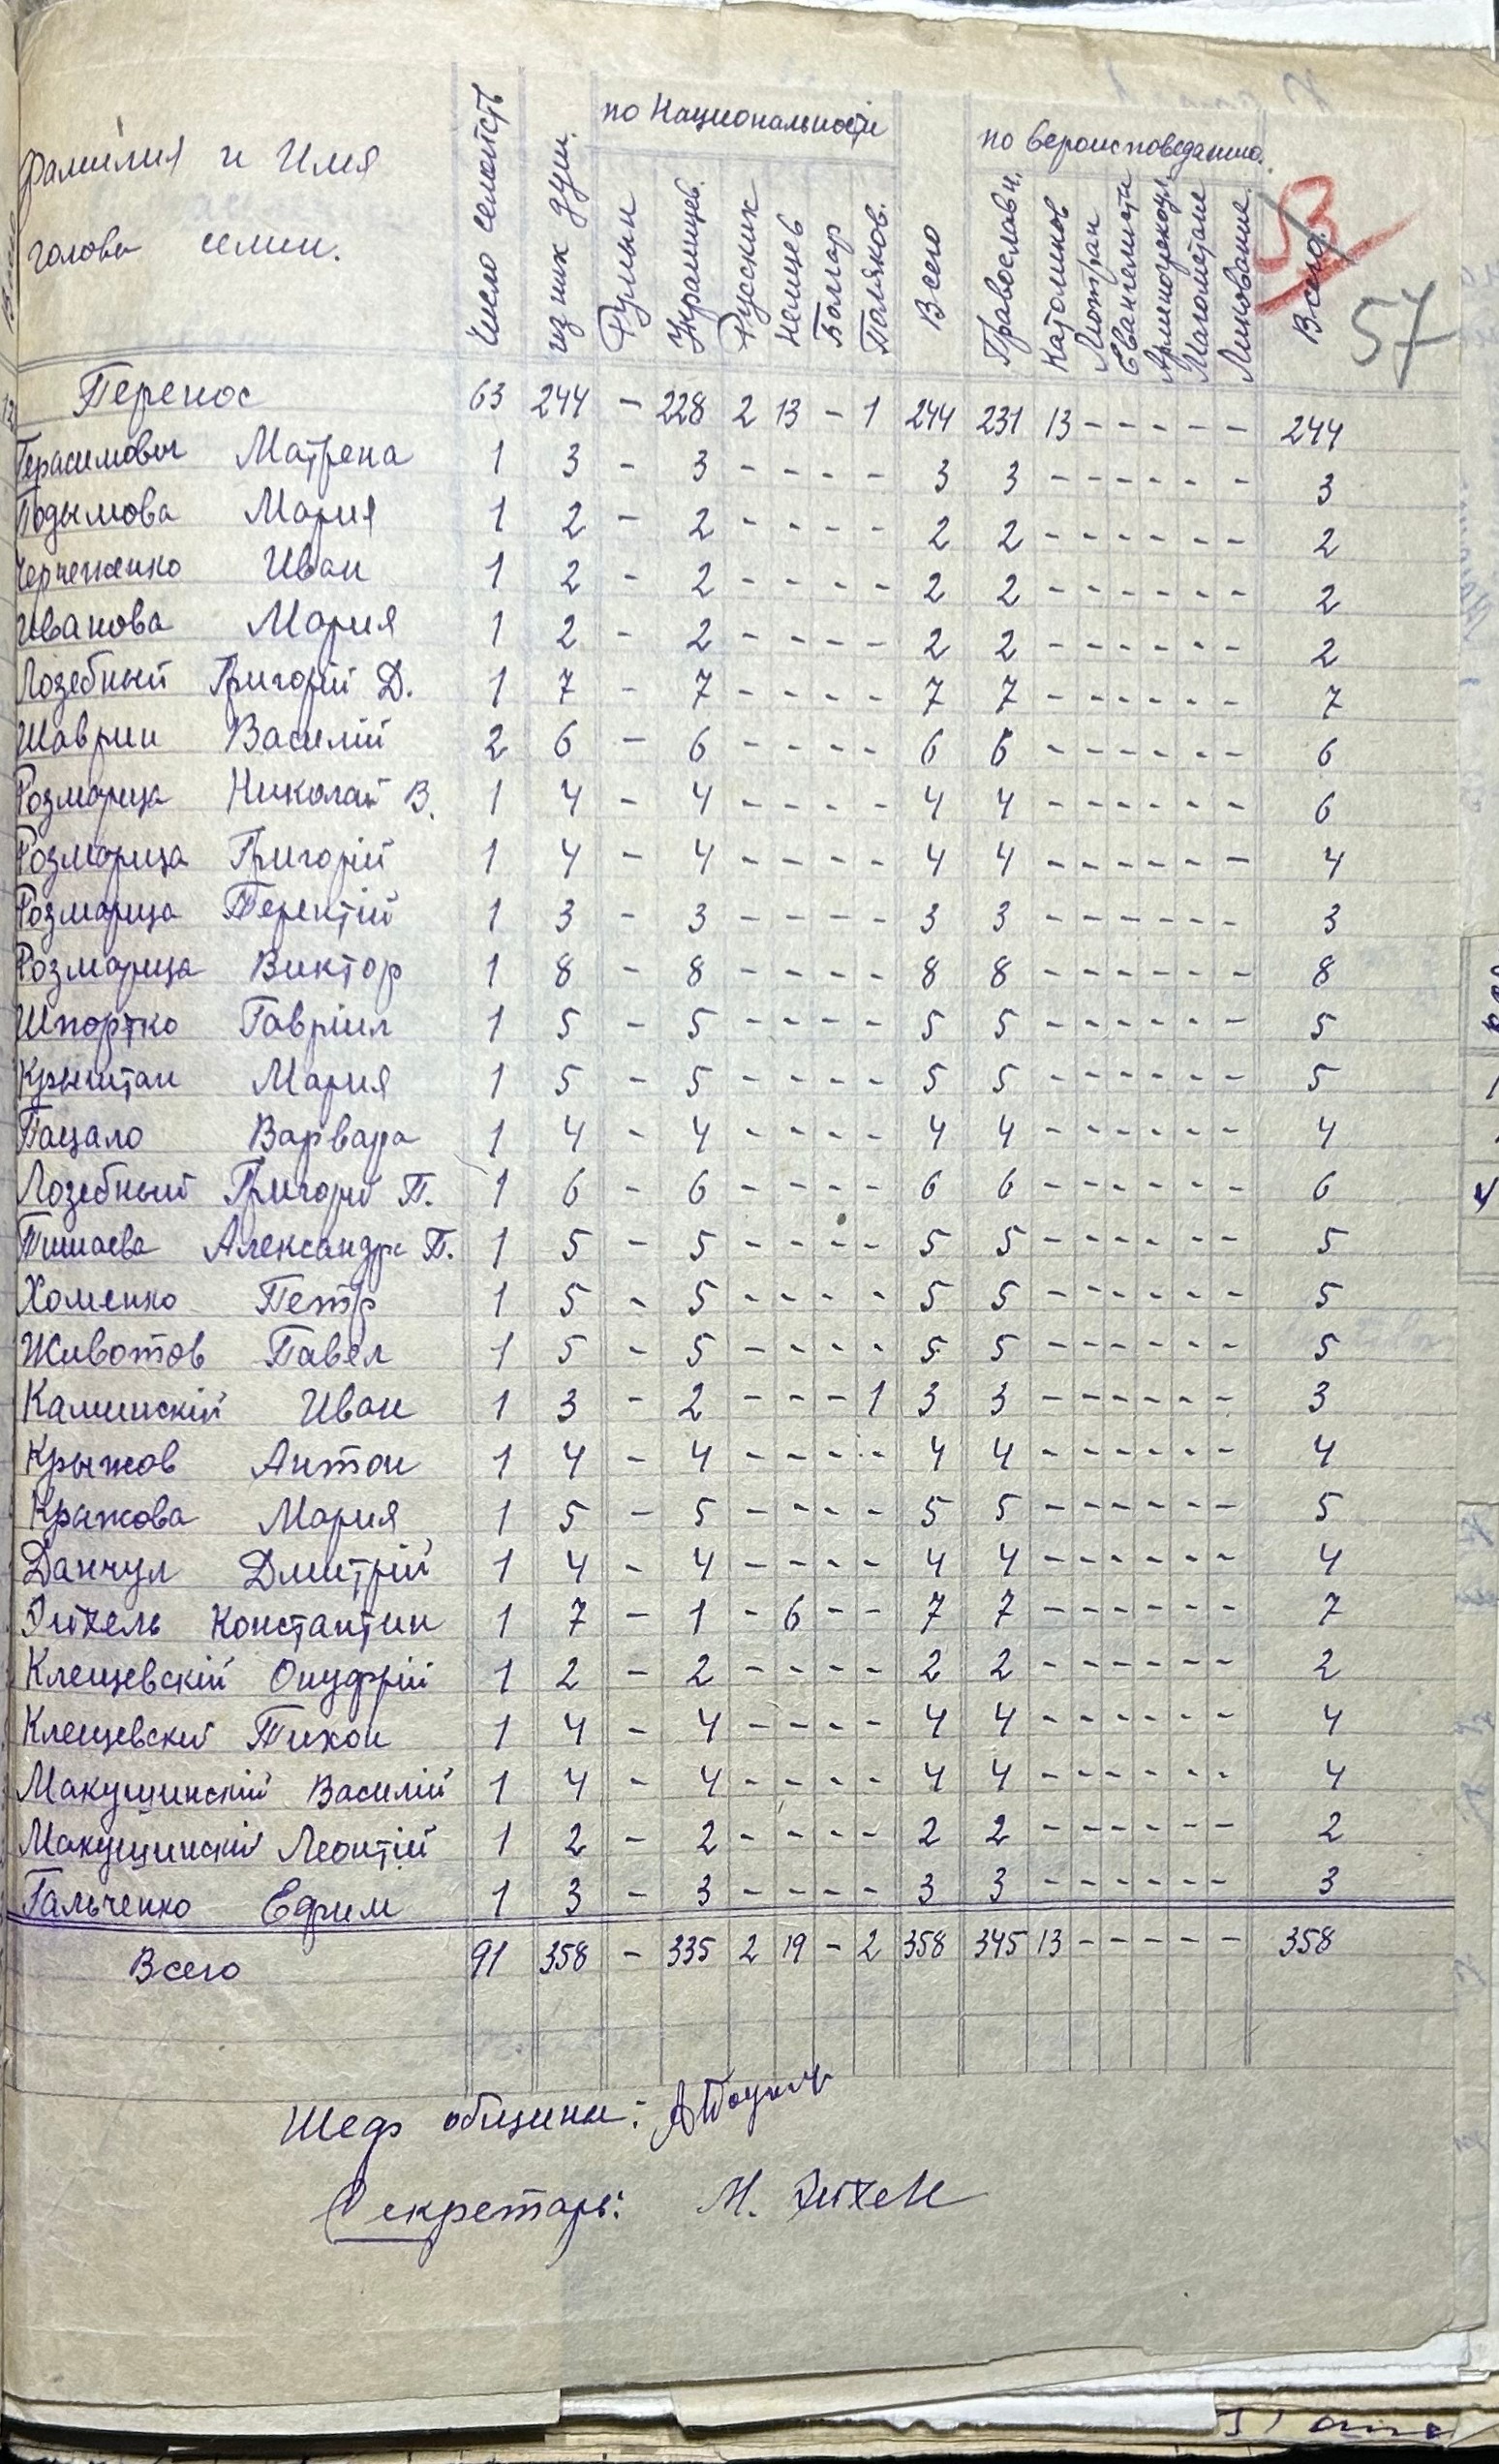 по Национальности
по вероисповеданию.
Фамилия и Имя
головы семии.
Число семейств
из них душ.
Румын
Украинцев.
Русских
Немцев
Болгар
Поляков.
Всего
Православн.
Католиков
Лютеран
Евангелисты
Магометане
Всего.
53
57
Перенос 63 244 - 228 2 13 - 1 244 231 13 - - - - - 244
Герасимович Матрена 1 3 - 3 - - - - 3 3 - - - - - - 3
Подымова Мария 1 2 - 2 - - - - 2 2 - - - - - - 2
Иван 1 2 - 2 - - - - 2 2 - - - - - - 2
Иванова Мария 1 2 - 2 - - - - 2 2 - - - - - - 2
Лозебный Григорій Д. 1 7 - 7 - - - - 7 7 - - - - - - 7
Шаврин Василій 2 6 - 6 - - - - 6 6 - - - - - - 6
Розмарица Николай В. 1 4 - 4 - - - - 4 4 - - - - - - 6
Розмарица Григорій 1 4 - 4 - - - - 4 4 - - - - - - 4
Розмарица Терентій 1 3 - 3 - - - - 3 3 - - - - - - 3
Розмарица Виктор 1 8 - 8 - - - - 8 8 - - - - - - 8
Шпортко Гавріил 1 5 - 5 - - - - 5 5 - - - - - - 5
Крыштан Мария 1 5 - 5 - - - - 5 5 - - - - - - 5
Пацало Варвара 1 4 - 4 - - - - 4 4 - - - - - - 4
Лозебный Григорій П. 1 6 - 6 - - - - 6 6 - - - - - - 6
Александр П. 1 5 - 5 - - - - 5 5 - - - - - - 5
Хоменко Петр 1 5 - 5 - - - - 5 5 - - - - - - 5
Животов Павел 1 5 - 5 - - - - 5 5 - - - - - - 5
Каминскій Иван 1 3 - 2 - - - 1 3 3 - - - - - - 3
Крыжов Антон 1 4 - 4 - - - - 4 4 - - - - - - 4
Крыжова Мария 1 5 - 5 - - - - 5 5 - - - - - - 5
Данчул Дмитрій 1 4 - 4 - - - - 4 4 - - - - - - 4
Константин 1 7 - 1 - 6 - - 7 7 - - - - - - 7
Клещевскій Онуфрій 1 2 - 2 - - - - 2 2 - - - - - - 2
Клещевскій Тихон 1 4 - 4 - - - - 4 4 - - - - - - 4
Макушинскій Василій 1 4 - 4 - - - - 4 4 - - - - - - 4
Макушинскій Леонтій 1 2 - 2 - - - - 2 2 - - - - - - 2
Гальченко Ефим 1 3 - 3 - - - - 3 3 - - - - - - 3
Всего 91 358 - 335 2 19 - 2 358 345 13 - - - - - 358
Шеф общины:
Секретарь: М.